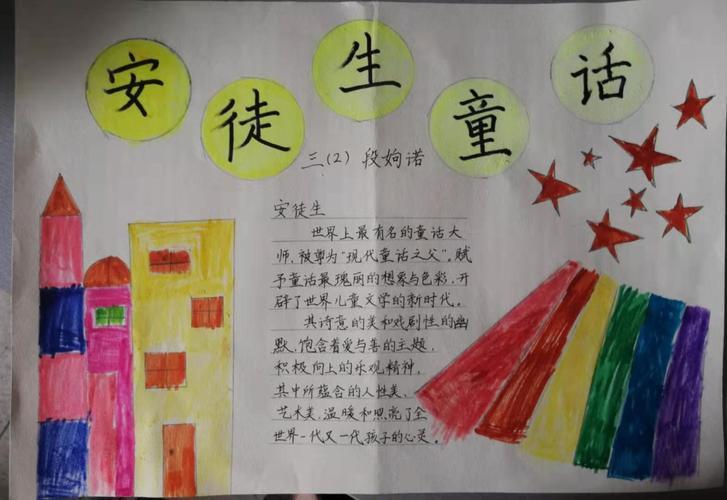 安徒生童话
三(2) 段姁诺
安徒生
世界上最有名的童话大
师,被尊为"现代童话之父",赋
予童话最瑰丽的想象与色彩,开
辟了世界儿童文学的新时代。
共诗意的美和戏剧性的幽
默,饱含着爱与善的主题,
积极向上的乐观精神,
其中所蕴含的人性美、
艺术美,温暖和照亮了全
世界一代又一代孩子的心灵。